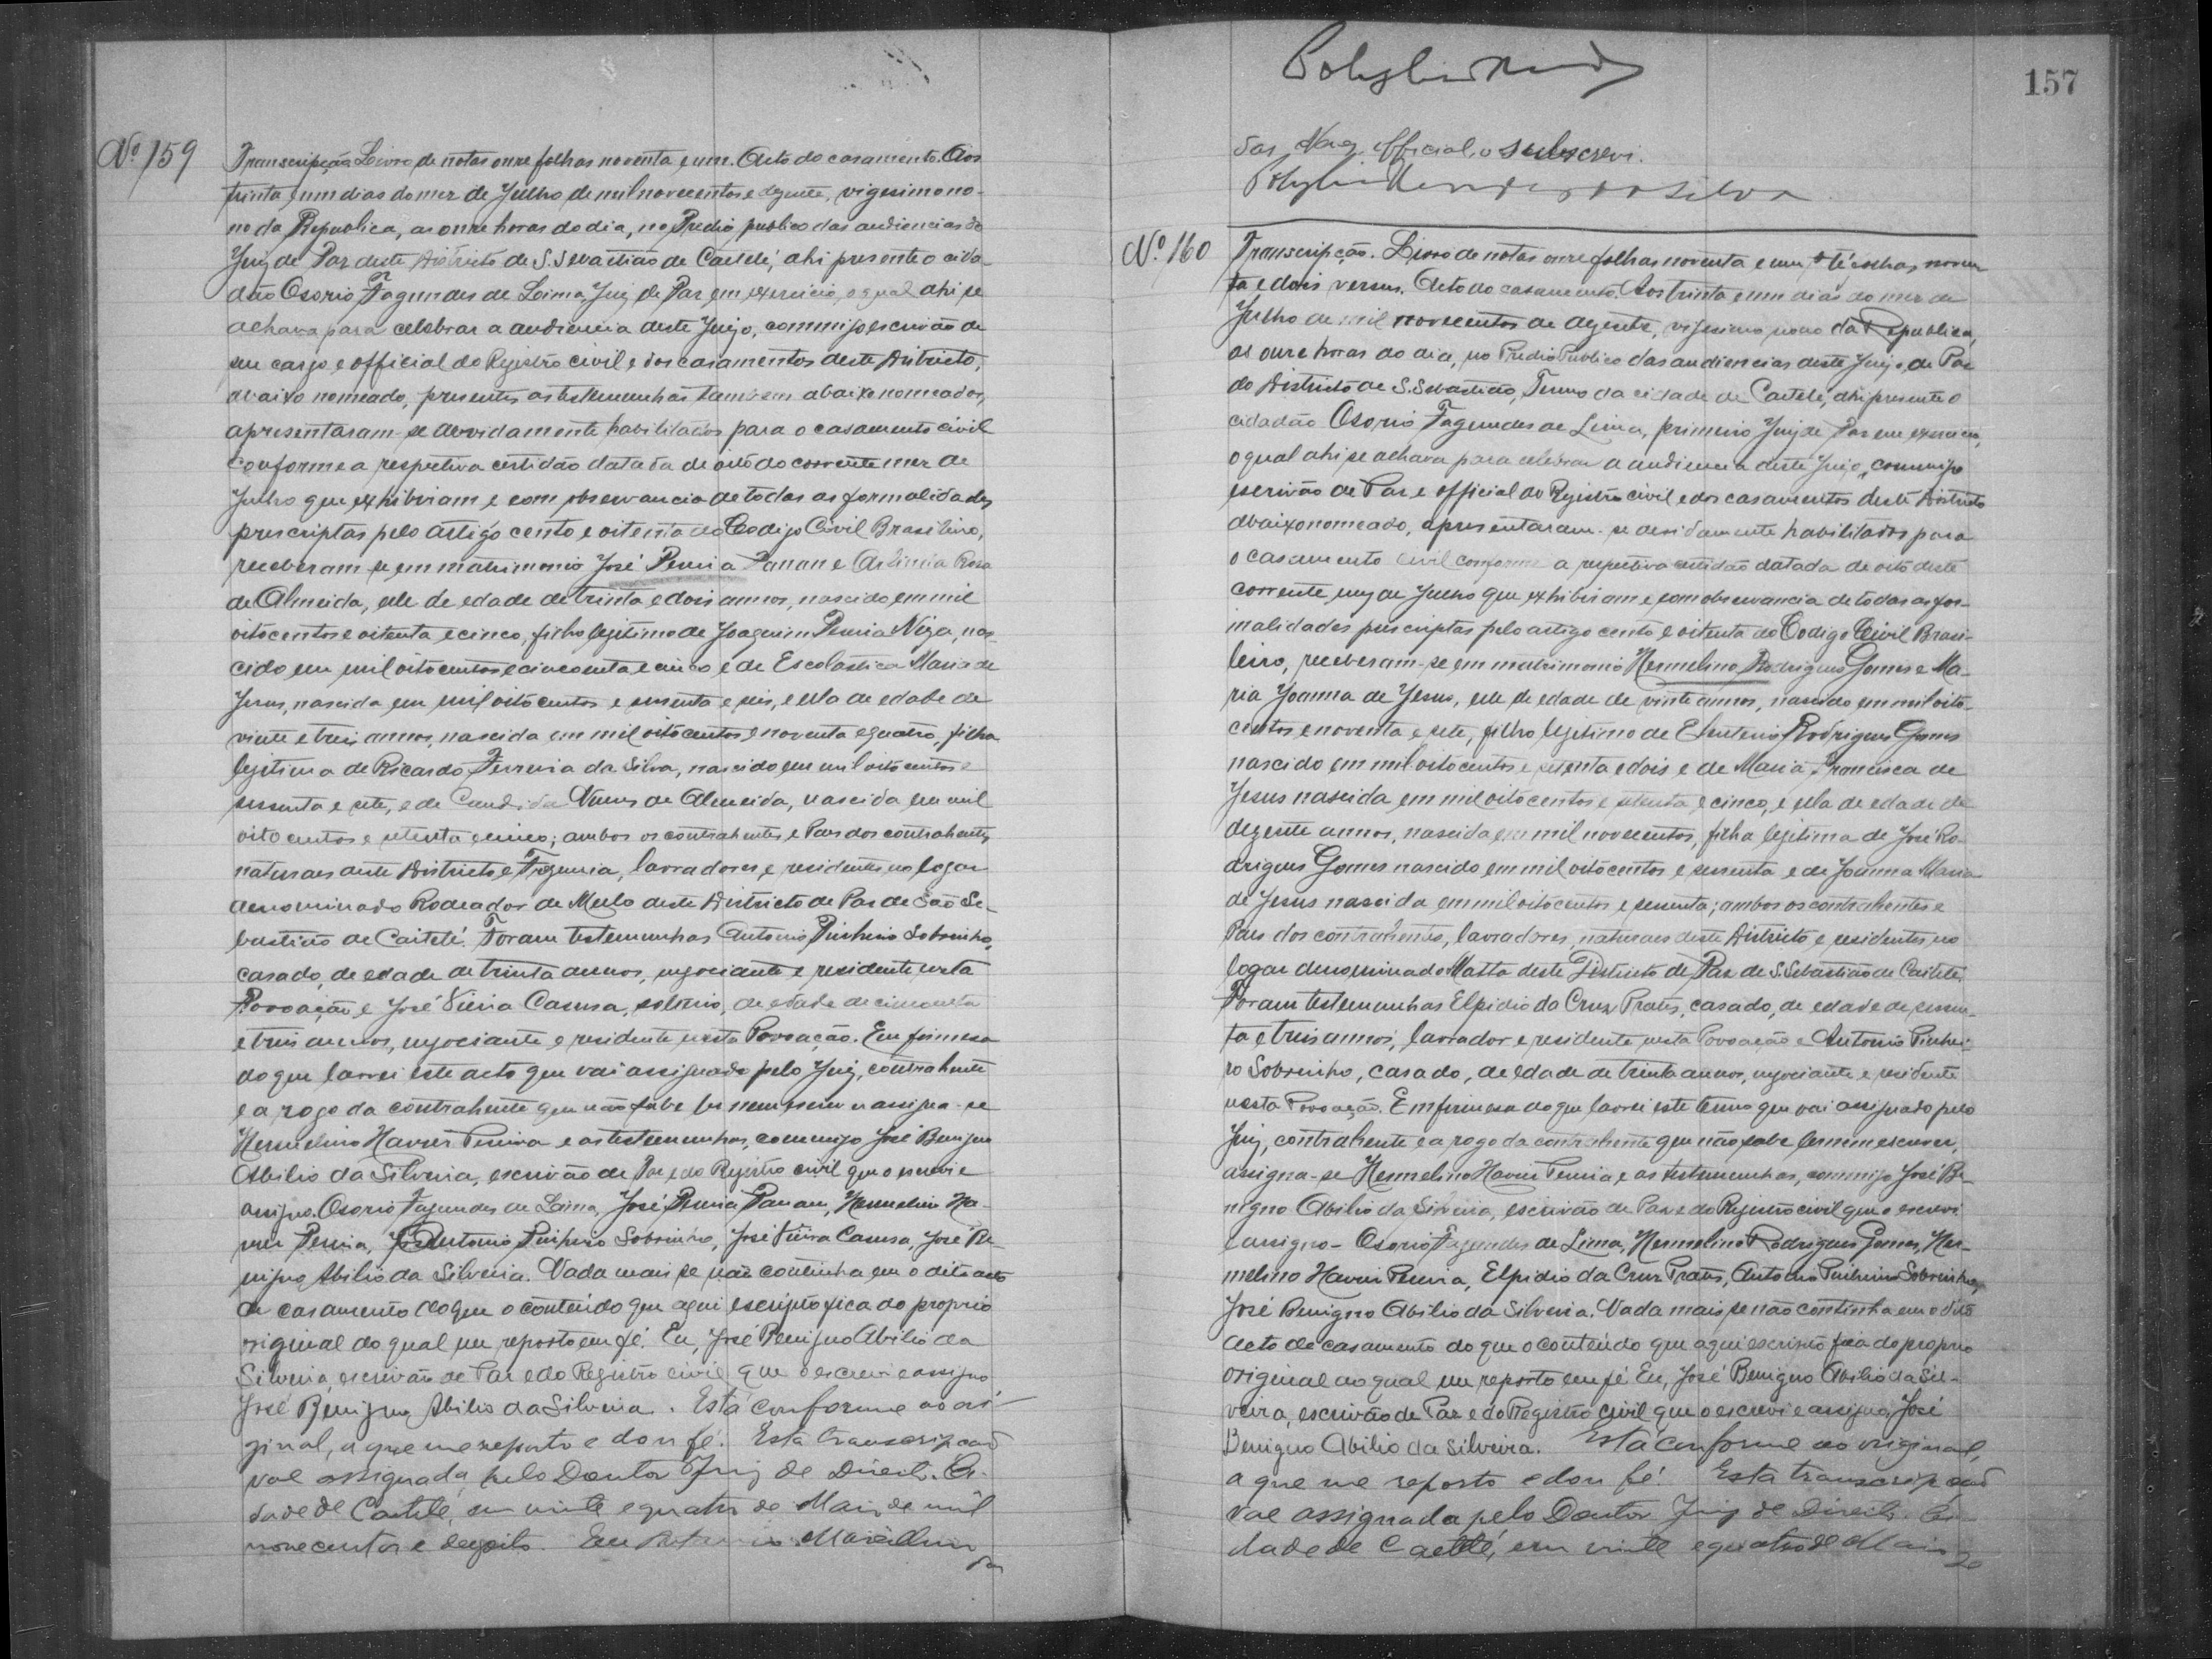 Nº 159
Transcripção Livro de notas onze folhas noventa e um. Acto do casamento. Aos
trinta e um dias do mez de Julho de mil novecentos e dezesete, vigesimo no-
no da Republica, as onze horas do dia, no Predio publico das audiencias do
Juiz de Paz deste Districto de S. Sebastião de Caeteté, ahi presente o cida-
dão Osorio Fagundes de Lima, Juiz de Paz em exercicio, o qual ahi se
achava para celebrar a audiencia deste Juizo, commigo escrivão de
seu cargo e official do Registro civil e dos casamentos deste Districto,
abaixo nomeado, presentes as testemunhas tambem abaixo nomeadas,
apresentaram-se devidamente habilitados para o casamento civil
conforme a respectiva certidão datada de oito do corrente mez de
Julho que exhibiram e com observancia de todas as formalidades
prescriptas pelo artigo cento e oitenta do Codigo Civil Brasileiro,
receberam-se em matrimonio José Pereira Panan e Arlinda Rosa
de Almeida, elle de edade de trinta e dois annos, nascido em mil
oitocentos e oitenta e cinco, filho legitimo de Joaquim Pereira Niza, nas-
cido em mil oitocentos e cincoenta e cinco e de Escolastica Maria de
Jesus, nascida em mil oitocentos e sessenta e seis, e ella de edade de
vinte e treis annos, nascida em mil oitocentos e noventa e quatro, filha
legitima de Ricardo Ferreira da Silva, nascido em mil oitocentos e
sessenta e sete, e de Candida Nunes de Almeida, nascida em mil
oitocentos e setenta e cinco; ambos os contrahentes e Paes dos contrahentes
naturaes deste Districto e Freguezia, lavradores e residentes no logar
denominado Rodeador de Mello deste Districto de Paz de São Se-
bastião de Caiteté. Foram testemunhas Antonio Pinheiro Sobrinho,
casado, de edade de trinta annos, negociante e residente nesta
Povoação e José Vieira Casusa, solteiro, de edade de cincoenta
e treis annos, negociante e residente nesta Povoação. Em firmesa
do que lavrei este acto que vai assignado pelo Juiz, contrahente
e a rogo da contrahente que não sabe ler nem escrever assigna-se
Hermelino Xavier Pereira e as testemunhas, commigo José Benigno
Abilio da Silveira, escrivão de Paz e do Registro civil que o escrevi e
assigno. Osorio Fagundes de Lima, José Pereira Panam, Hermelino Xa-
vier Pereira, Antonio Pinheiro Sobrinho, José Vieira Casusa, José Be-
nigno Abilio da Silveira. Nada mais se não continha em o dito acto
de casamento do que o conteúdo que aqui escripto fica do proprio
original do qual me reporto em fé. Eu, José Benigno Abilio da
Silveira, escrivão de Paz e do Registro civil que o escrevi e assigno
José Benigno Abilio da Silveira. Está conforme ao ori-
ginal, a que me reporto e dou fé. Esta transcripção
vae assignada pelo Doutor Juiz de Direito. Ci-
dade de Caeteté, em vinte e quatro de Maio de mil
novecentos e dezoito. Eu
157
Official, o subscrevi.
Nº 160
Transcripção. Livro de notas onze folhas noventa e um até folhas noven-
ta e dois versus. Acto do casamento. Aos trinta e um dias do mez de
Julho de mil novecentos de dezesete, vigesimo nono da Republica,
as onze horas do dia, no Predio Publico das audiencias deste Juizo de Paz
do Districto de S. Sebastião, Termo da cidade de Caeteté, ahi presente o
cidadão Osorio Fagundes de Lima, primeiro Juiz de Paz em exercicio,
o qual ahi se achava para celebrar a audiencia deste Juizo, commigo
escrivão de Paz e official do Registro civil e dos casamentos deste Districto
abaixo nomeado, apresentaram-se devidamente habilitados para
o casamento civil conforme a respectiva certidão datada de oito deste
corrente mez de Julho que exhibiram e com observancia de todas as for-
malidades prescriptas pelo artigo cento e oitenta do Codigo Civil Brasi-
leiro, receberam-se em matrimonio Hermelino Rodrigues Gomes e Ma-
ria Joanna de Jesus, elle de edade de vinte annos, nascido em mil oito-
centos e noventa e sete, filho legitimo de Eleuterio Rodrigues Gomes
nascido em mil oitocentos e setenta e dois e de Maria Francisca de
Jesus nascida em mil oitocentos e setenta e cinco, e ella de edade de
dezesete annos, nascida em mil novecentos, filha legitima de José Ro-
drigues Gomes nascido em mil oitocentos e sessenta e de Joanna Maria
de Jesus nascida em mil oitocentos e sessenta; ambos os contrahentes e
Paes dos contrahentes, lavradores, naturaes deste Districto e residentes no
logar denominado Matta deste Districto de Paz de S. Sebastião de Caiteté.
Foram testemunhas Elpidio da Cruz Prates, casado, de edade de sessen-
ta e treis annos, lavrador e residente nesta Povoação e Antonio Pinhei-
ro Sobrinho, casado, de edade de trinta annos, negociante e residente
nesta Povoação. Em firmesa do que lavrei este termo que vai assignado pelo
Juiz, contrahente e a rogo da contrahente que não sabe ler nem escrever,
assigna-se Hermelino Xavier Pereira e as testemunhas, commigo José Be-
nigno Abilio da Silveira, escrivão de Paz e do Registro civil que o escrevi
e assigno - Osorio Fagundes de Lima, Hermelino Rodrigues Gomes, Her-
melino Xavier Pereira, Elpidio da Cruz Prates, Antonio Pinheiro Sobrinho,
José Benigno Abilio da Silveira. Nada mais se não continha em o dito
acto de casamento do que o conteúdo que aqui escripto fica do proprio
original ao qual me reporto em fé. Eu, José Benigno Abilio da Sil-
veira, escrivão de Paz e do Registro civil que o escrevi e assigno, José
Benigno Abilio da Silveira. Está conforme ao original,
a que me reporto e dou fé. Esta transcripção
vae assignada pelo Doutor Juiz de Direito. Ci-
dade de Caeteté, em vinte e quatro de Maio de